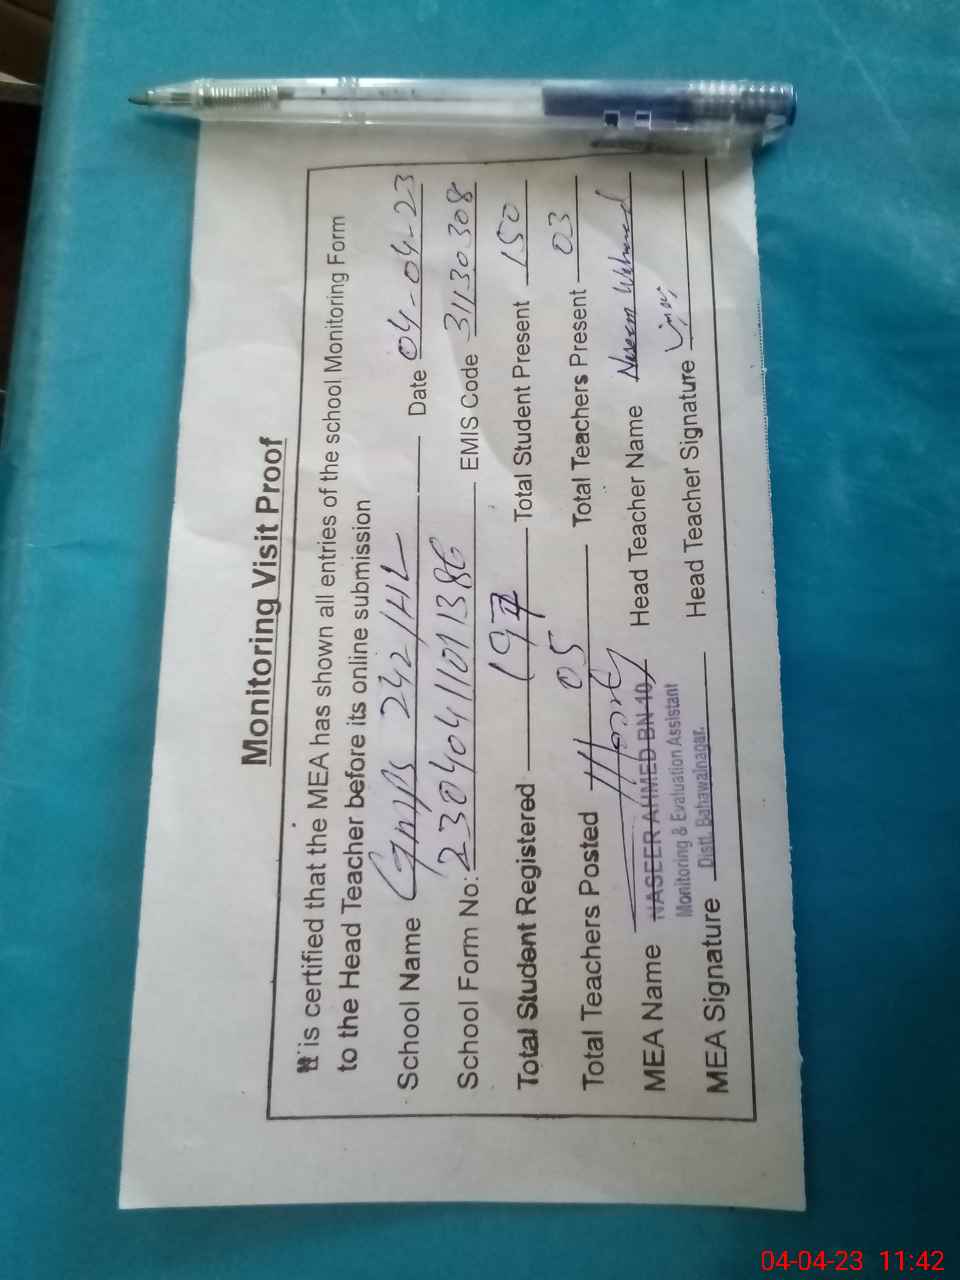 Monitoring Visit Proof
It is certified that the MEA has shown all entries of the school Monitoring Form
to the Head Teacher before its online submission
School Name GMPS 242/HL Date 04-04-23
School Form No: 2304041101386 EMIS Code 31130308
Total Student Registered Total Student Present 150
Total Teachers Posted 05 Total Teachers Present 03
MEA Name NASEER AHMED BN-10 Head Teacher Name Naseem
Monitoring & Evaluation Assistant
MEA Signature Distt. Bahawalnagar. Head Teacher Signature
04-04-23 11:42